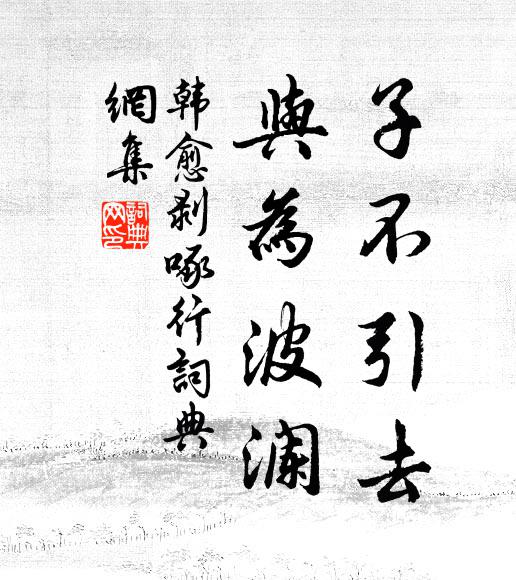 子不引去
與為波瀾
韩愈剥啄行詞典
網集
詞典
网印